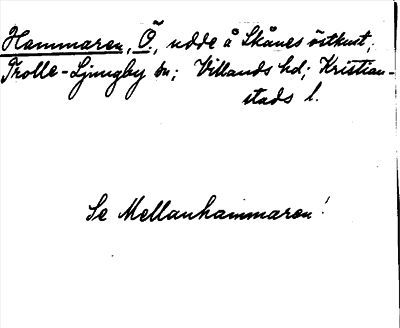 Hammaren, Ö., udde å Skånes östkust,
Trolle-Ljungby sn; Villands hd; Kristian-
stads l.
Se Mellanhammaren!